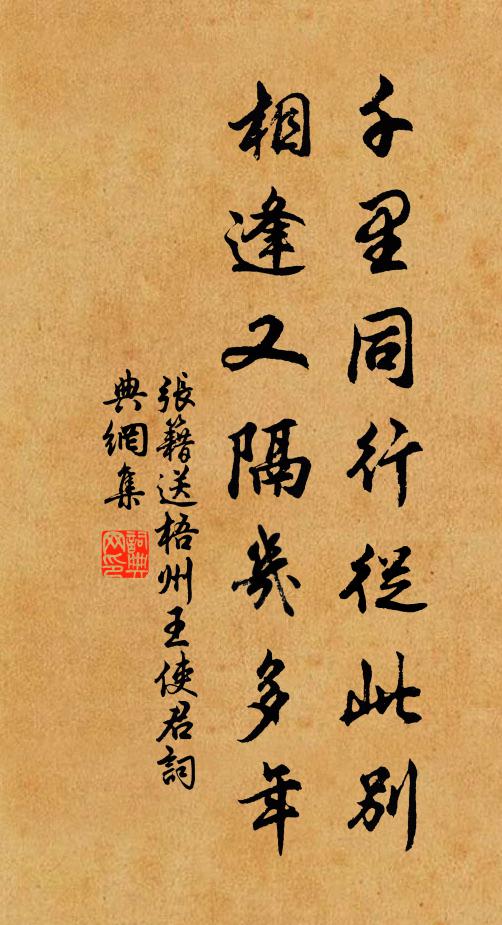 千里同行從此別
相逢又隔幾多年
張籍送梧州王使君詞
典網集
詞典
网印